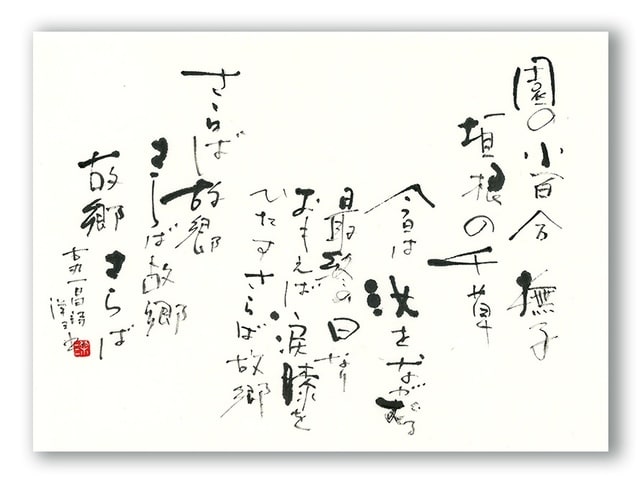 園の小百合 撫子
垣根の千草
今日は 汝をながむる
最終の日なり
おもえば 涙膝を
ひたす さらば故郷
さらば故郷
さらば故郷
故郷 さらば
吉丸一昌詩